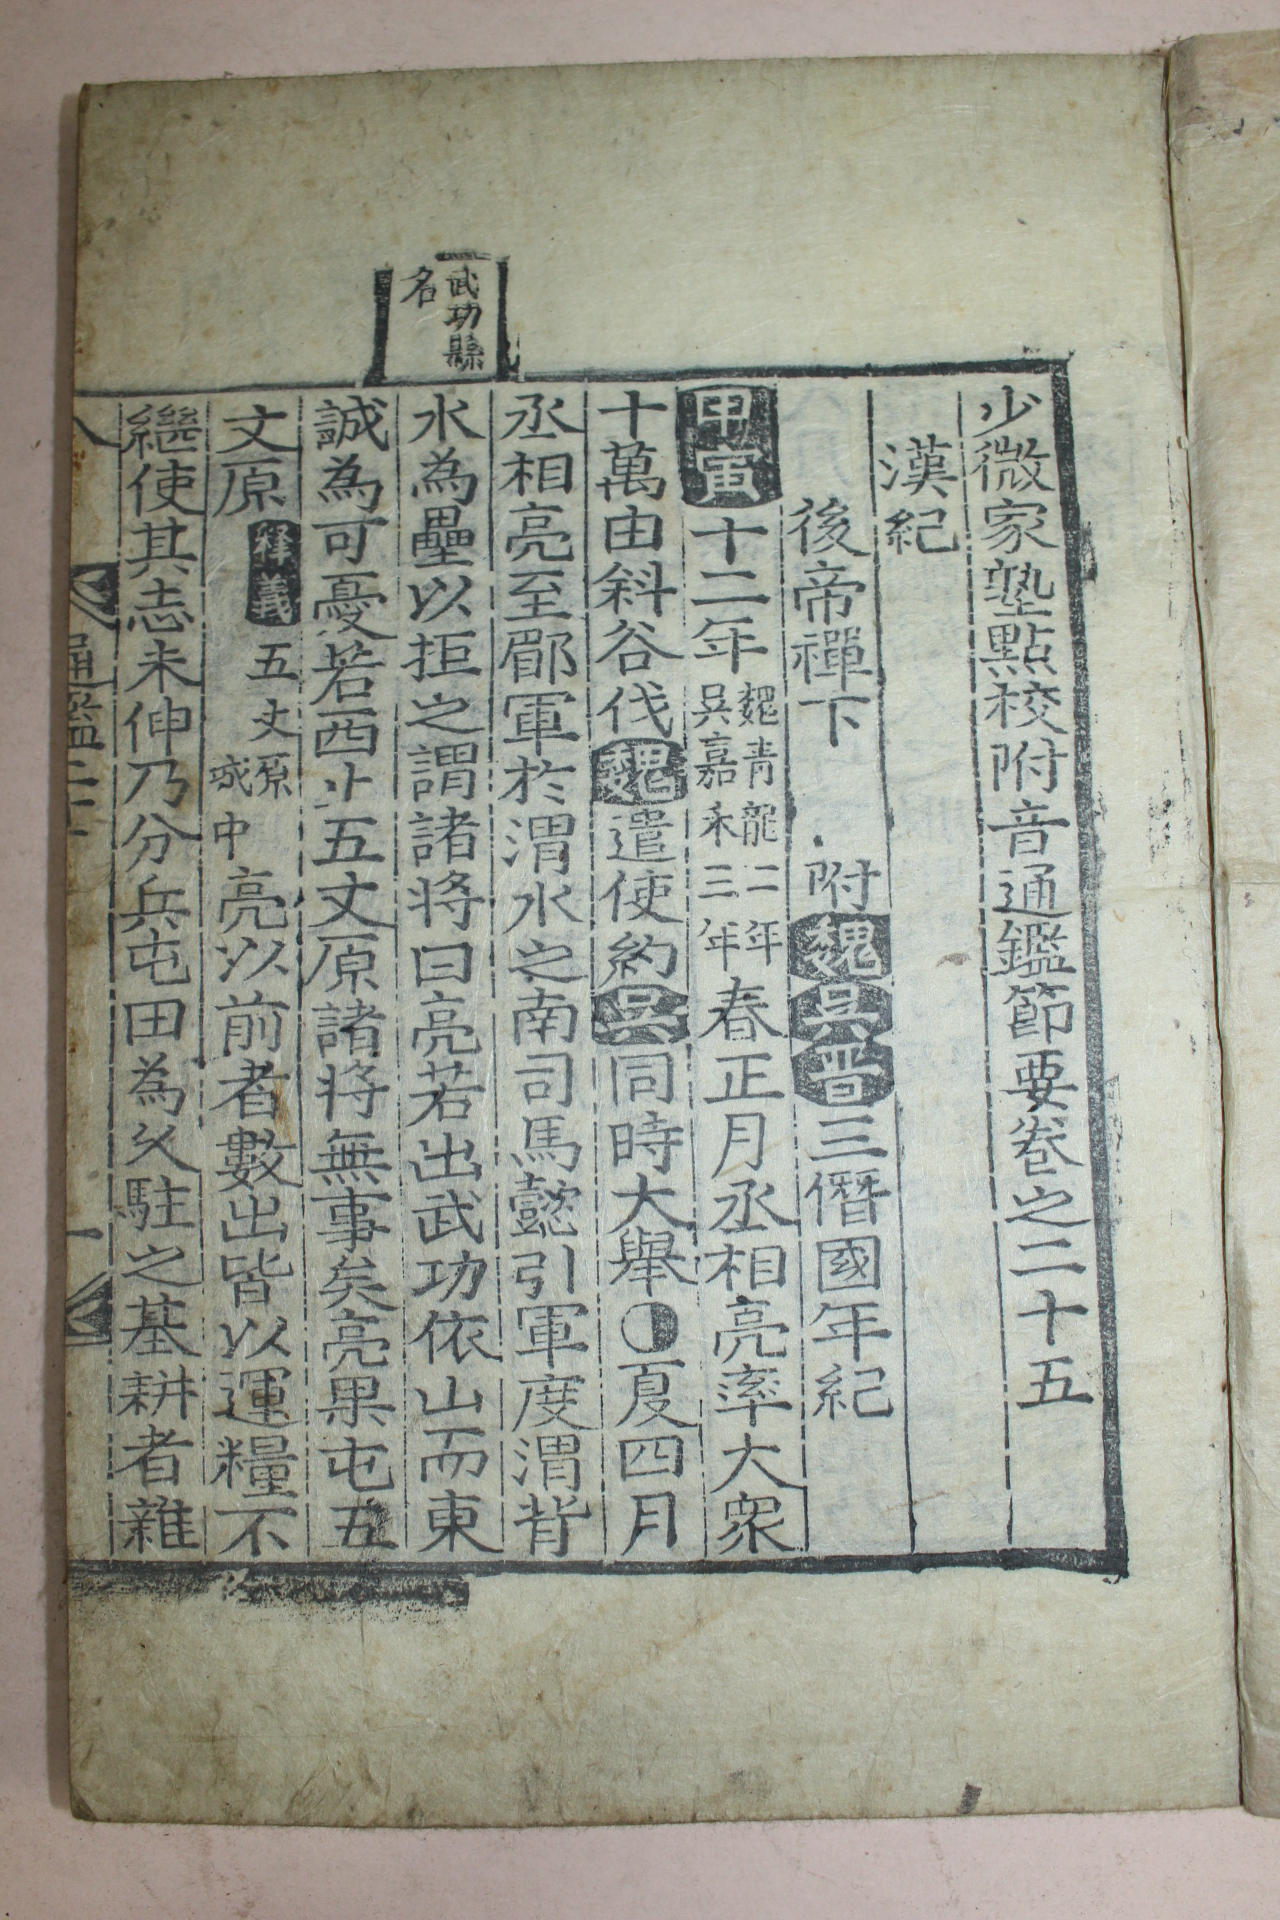 少微家塾點校附音通鑑節要卷之二十五
漢紀
後帝禪下 附魏吳晉三僭國年紀
甲寅十二年魏青龍二年吳嘉禾三年春正月丞相亮率大衆
十萬由斜谷伐魏遣使約吳同時大舉○夏四月
丞相亮至郿軍於渭水之南司馬懿引軍度渭背
武功縣
名
水為壘以拒之謂諸将曰亮若出武功依山而東
誠為可憂若西上五丈原諸将無事矣亮果屯五
文原釋義五丈原城中亮以前者數出皆以運糧不
繼使其志未伸乃分兵屯田為久駐之基耕者雜
通鑑二十
一